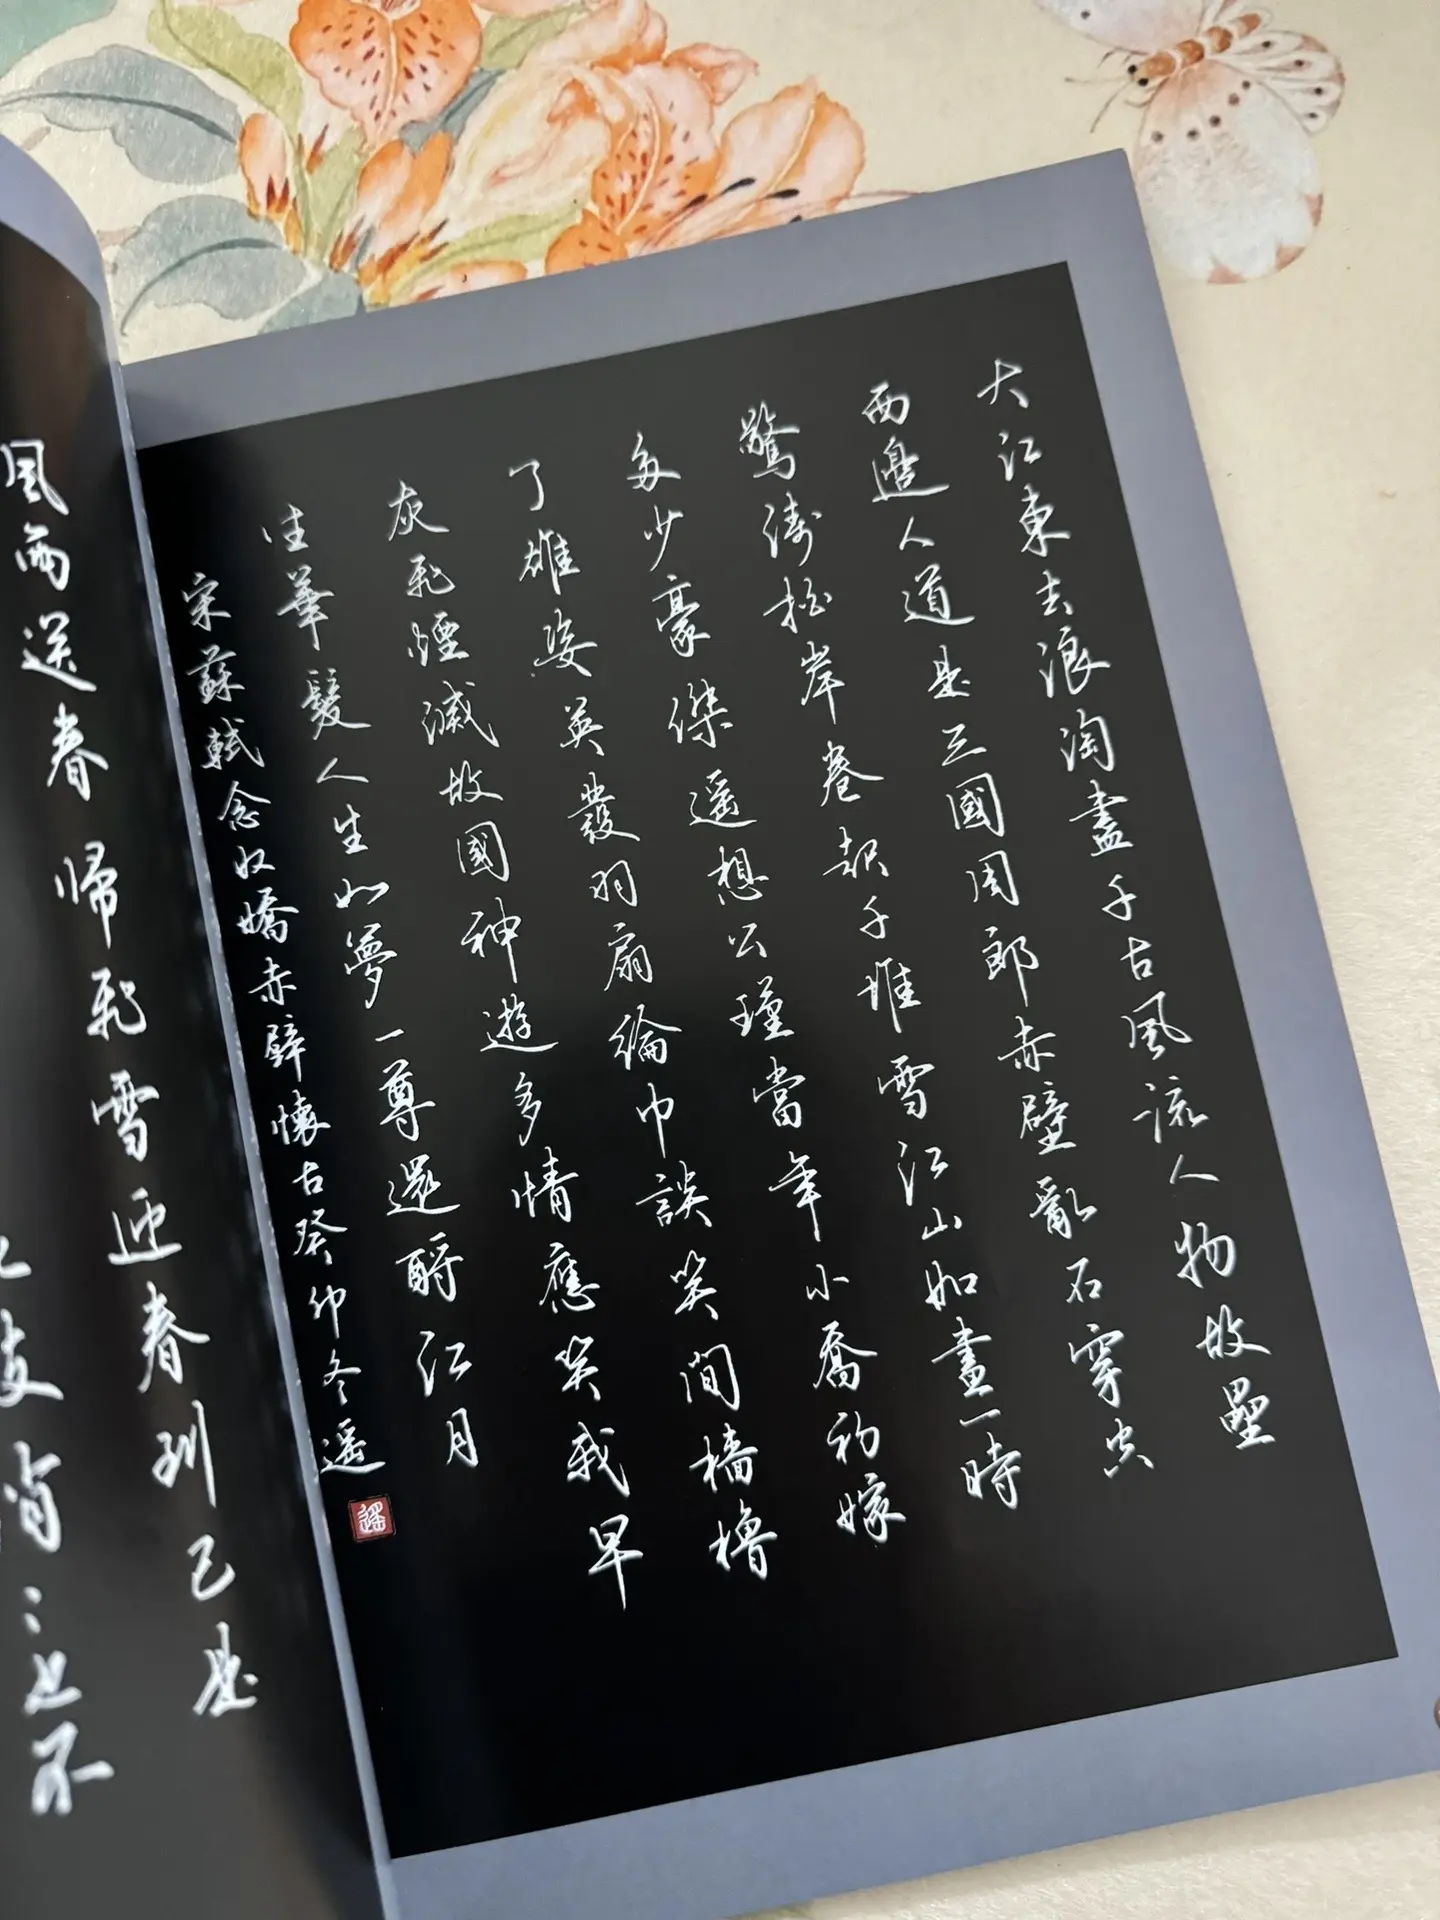 大江東去浪淘盡千古風流人物故壘
西邊人道是三國周郎赤壁亂石穿空
驚濤拍岸卷起千堆雪江山如畫一時
多少豪傑遥想公瑾當年小喬初嫁
了雄姿英發羽扇綸巾談笑間檣櫓
灰飛煙滅故國神遊多情應笑我早
生華髮人生如夢一尊還酹江月
宋蘇軾念奴嬌赤壁懷古癸卯冬遥
遥
風雨送春帰飛雪迎春到已是
俏〻也不